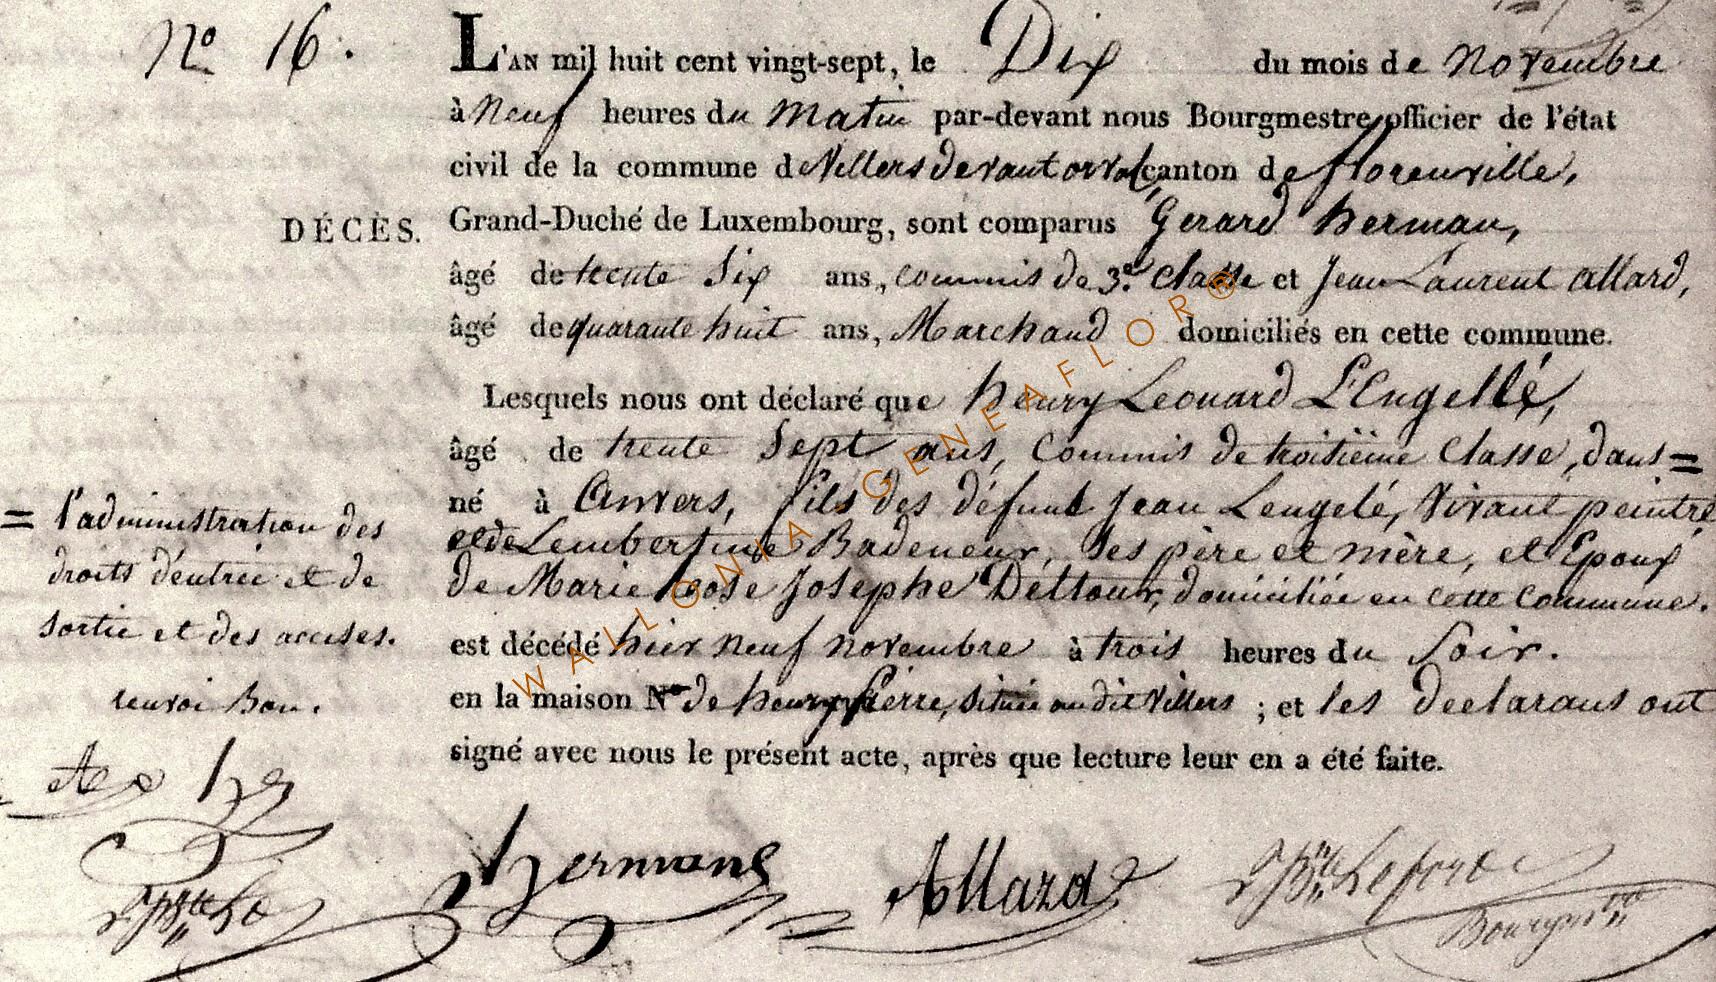 No 16.
L'AN mil huit cent vingt-sept, le Dix du mois de novembre
à neuf heures du matin par-devant nous Bourgmestre, officier de l'état
civil de la commune de Villers devant orval, canton de florenville,
DÉCÈS.
Grand-Duché de Luxembourg, sont comparus Gerard herman,
âgé de trente Six ans, commis de 3.e classe et Jean Laurent allard,
âgé de quarante huit ans, Marchand domiciliés en cette commune.
Lesquels nous ont déclaré que henry Leonard L'Engellé,
âgé de trente Sept ans, Commis de troisiëme Classe, dans =
né à Anvers, fils des défunt Jean Lengelé, Vivant peintre
et de Lembertine Badeneux, ses père et mère, et Epoux
de Marie rose Josephe Dettour, domiciliée en cette Commune.
est décédé hier neuf novembre à trois heures du Soir.
en la maison No de henry pierre, située au dit Villers ; et les declarans ont
signé avec nous le présent acte, après que lecture leur en a été faite.
= l'administration des
droits d'entrée et de
sortie et des accises.
renvoi Bon.
hermans
Allard
JBte Lefort
Bourgmtre
WALLONIA GENEAFLOR®